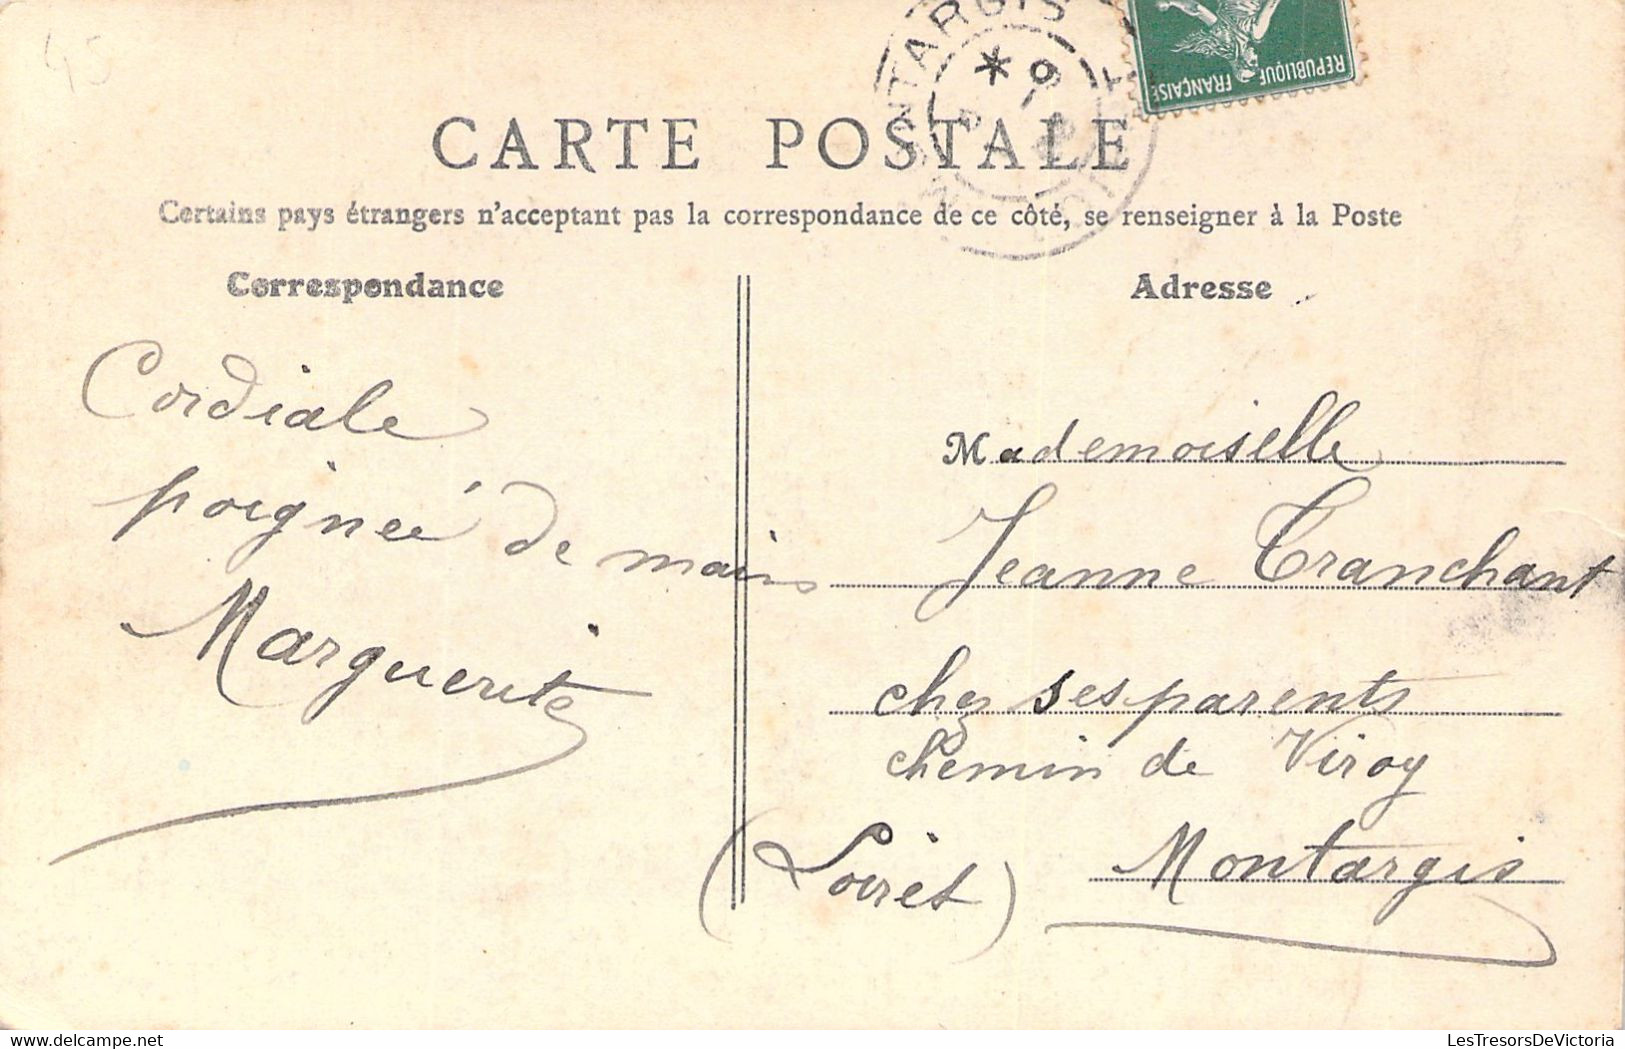 45
MONTARGIS
RÉPUBLIQUE FRANÇAISE
CARTE POSTALE
Certains pays étrangers n'acceptant pas la correspondance de ce côté, se renseigner à la Poste
Correspondance
Adresse
Cordiale
poignée de mains
Marguerite
Mademoiselle
Jeanne Tranchant
chez ses parents
chemin de Viroy
Montargis
(Loiret)
LesTresorsDeVictoria